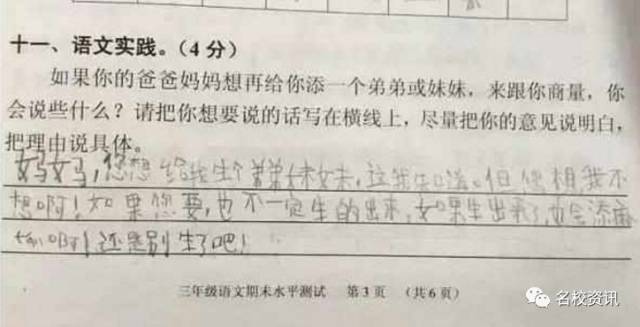 十一、语文实践。（4分）
如果你的爸爸妈妈想再给你添一个弟弟或妹妹，来跟你商量，你
会说些什么？请把你想要说的话写在横线上，尽量把你的意见说明白，
把理由说具体。
妈妈，您想给我生个弟弟妹妹，这我知道。但您想我不
想啊！如果您要，也不一定生的出来，如果生出来了，也会添麻
烦啊！还是别生了吧！
三年级语文期末水平测试 第3页 （共6页）
名校资讯